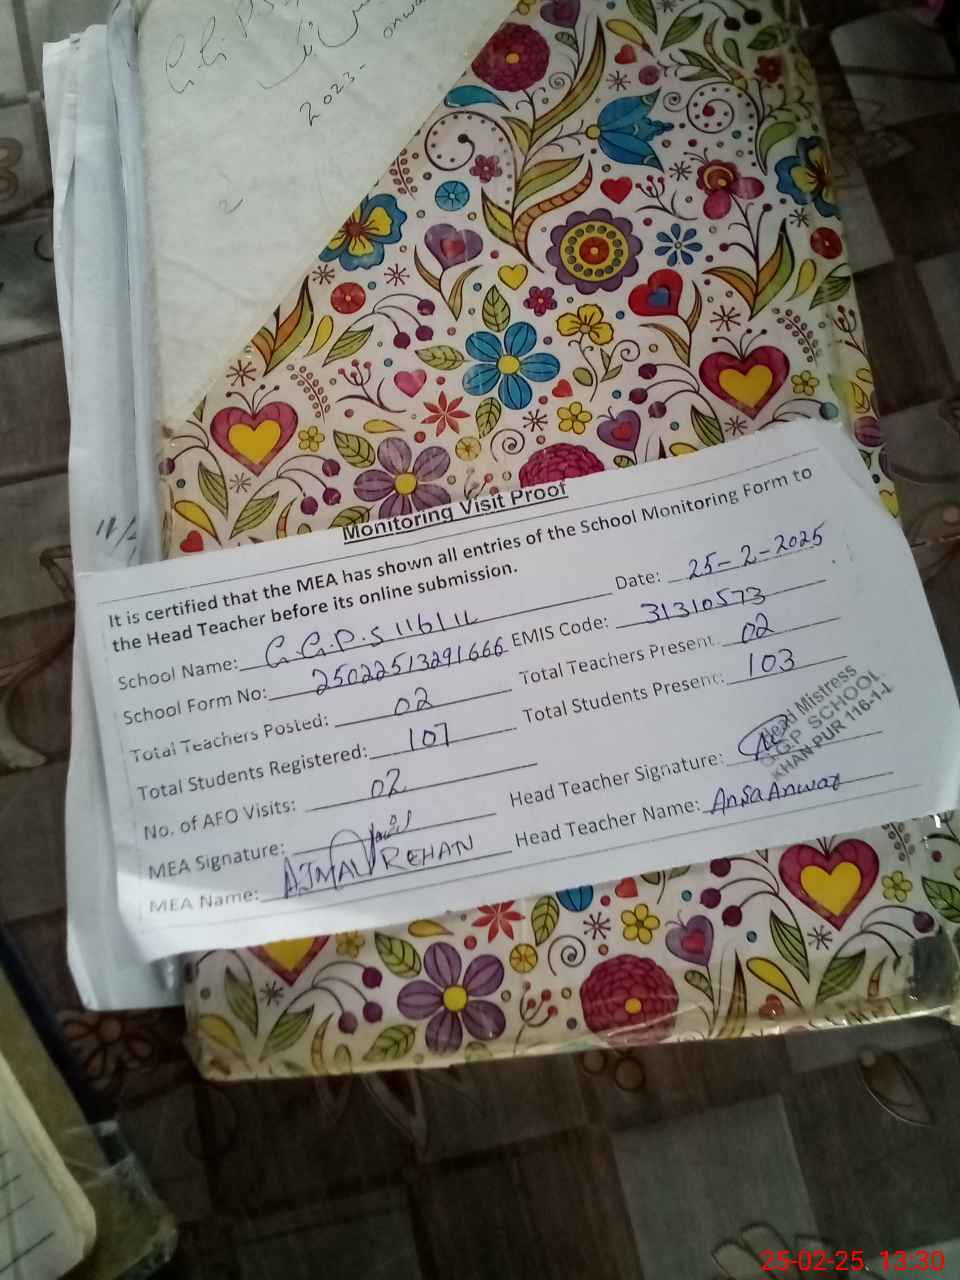 2023-
Monitoring Visit Proof
It is certified that the MEA has shown all entries of the School Monitoring Form to
the Head Teacher before its online submission.
Date: 25-2-2025
School Name: G.G.P.S 116/1L
EMIS Code: 31310573
School Form No: 25022513291666
Total Teachers Present: 02
Total Teachers Posted: 02
Total Students Present: 103
Total Students Registered: 107
No. of AFO Visits: 02
Head Teacher Signature:
Head Mistress
G.G.P SCHOOL
KHANPUR 116-1-L
MEA Signature:
Head Teacher Name: Ansa Anwar
MEA Name: AJMAL REHAN
25-02-25. 13:30